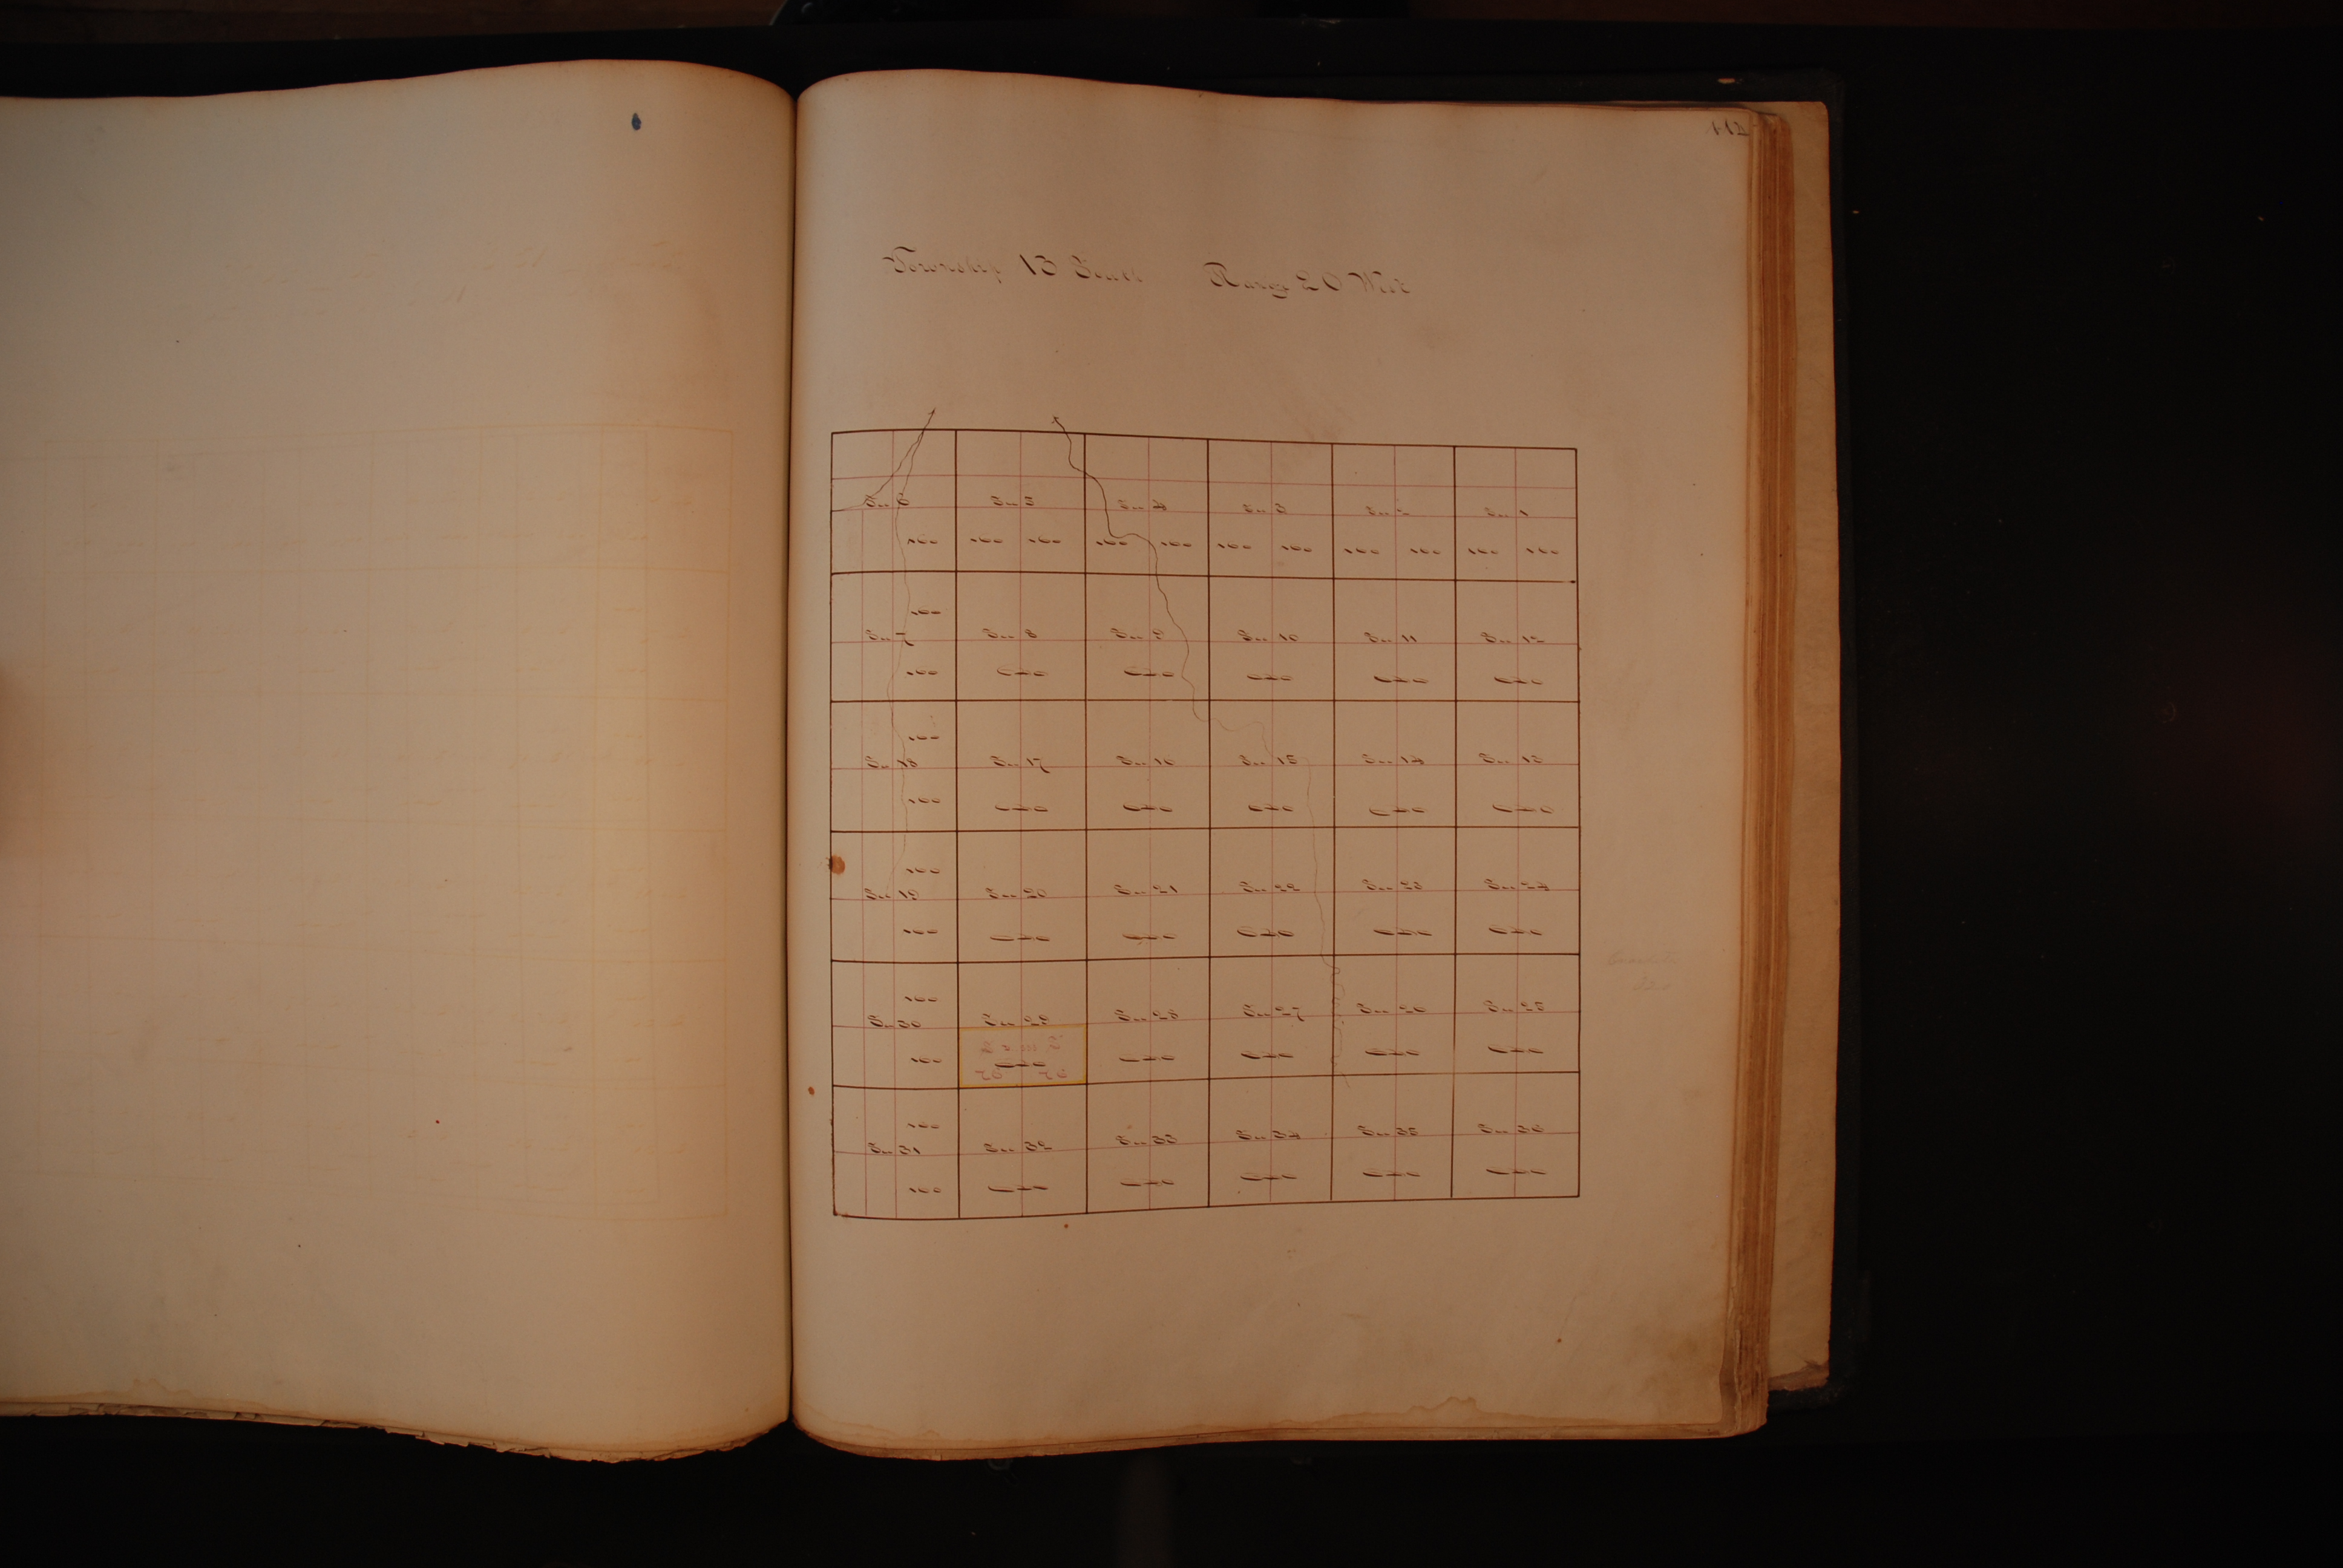 112
Township 13 South Range 20 West
Sec 6 Sec 5 Sec 4 Sec 3 Sec 2 Sec 1
160 160 160 160 160 160 160 160 160 160 160
160
Sec 7 Sec 8 Sec 9 Sec 10 Sec 11 Sec 12
160 640 640 640 640 640
160
Sec 18 Sec 17 Sec 16 Sec 15 Sec 14 Sec 13
160 640 640 640 640 640
160
Sec 19 Sec 20 Sec 21 Sec 22 Sec 23 Sec 24
160 640 640 640 640 640
160
Sec 30 Sec 29 Sec 28 Sec 27 Sec 26 Sec 25
160 640 640 640 640 640
160
Sec 31 Sec 32 Sec 33 Sec 34 Sec 35 Sec 36
160 640 640 640 640 640